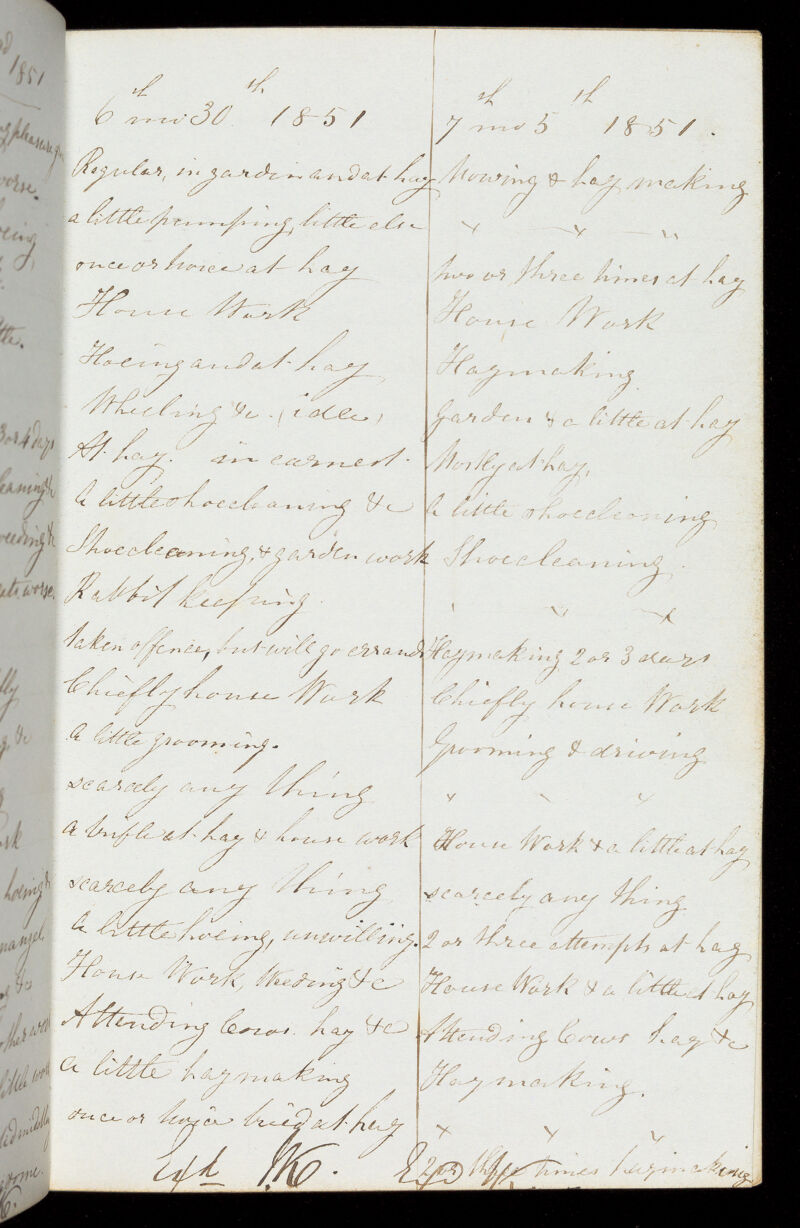 6th mo 30th 1851
Regular, in garden and at hay
a little pumping, little else
once or twice at hay
House Work
Hoeing and at hay
Wheeling &c. (idle)
At hay. in earnest.
A little shoecleaning &c
Shoecleaning, & garden work
Rabbit keeping.
taken offence, but will go errands
Chiefly house Work
A little grooming.
scarcely any thing
A trifle at hay & house work
scarcely any thing
A little hoeing, unwilling.
House Work, Weeding &c
Attending Cows hay &c
A little haymaking
once or twice tried at hay
7th mo 5th 1851.
Mowing & hay making
" — " — "
two or three times at hay
House Work
Haymaking.
Garden & a little at hay
Mostly at hay,
A little shoecleaning
Shoecleaning.
" " "
Haymaking 2 or 3 days
Chiefly house Work
Grooming & driving
" " "
House Work & a little at hay
scarcely any thing
2 or three attempts at hay
House Work & a little at hay
Attending Cows hay &c
Haymaking.
" " "
2 or three times haymaking
1851
worse.
3 or 4 days